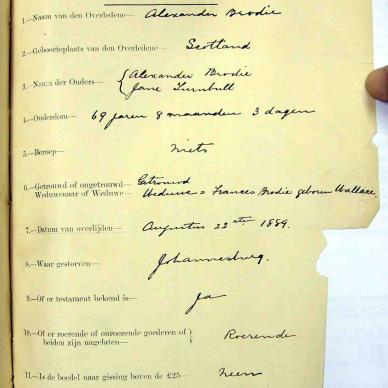 1.—Naam van den Overledene— Alexander Brodie
2.—Geboorteplaats van den Overledene— Scotland
3.—Naam der Ouders— { Alexander Brodie
Jane Turnbull
4.—Ouderdom— 69 jaren 8 maanden 3 dagen
5.—Beroep— niets
6.—Getrouwd of ongetrouwd— Getrouwd
Weduwenaar of Weduwe— Weduwe = Frances Brodie geboren Wallace.
7.—Datum van overlijden— Augustus 22ste 1889.
8.—Waar gestorven— Johannesburg.
9.—Of er testament bekend is— Ja
10.—Of er roerende of onroerende goederen of } Roerende
beiden zijn nagelaten—
11.—Is de boedel naar gissing boven de £25— neen